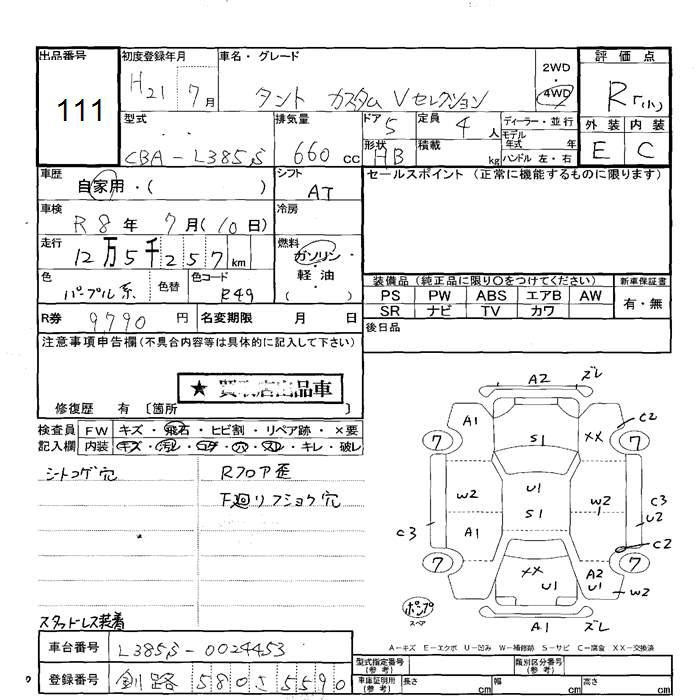 出品番号
111
初度登録年月
H21 7月
車名・グレード
タント カスタム Vセレクション
2WD
・
4WD
評価点
R「(小)
型式
CBA-L385S
排気量
660 cc
ドア 5
形状 HB
定員 4 人
積載 kg
ディーラー・並行
モデル年式 年式
ハンドル 左・右
外装 内装
E C
車歴
自家用・( )
シフト
AT
セールスポイント (正常に機能するものに限ります)
車検
R8年 7月(10日)
冷房
走行
12万5千257km
燃料
ガソリン・
軽油
( )
色
パープル系
色替
色コード
R49
装備品 (純正品に限り○をつけてください)
新車保証書
PS PW ABS エアB AW
SR ナビ TV カワ
有・無
R券 9790円
名変期限 月 日
後日品
注意事項申告欄(不具合内容等は具体的に記入して下さい)
★ 買取店出品車
修復歴 有 〔箇所 〕
検査員 FW キズ・飛石・ヒビ割・リペア跡・×要
記入欄 内装 キズ・汚レ・コゲ・穴・スレ・キレ・破レ
シートコゲ穴
Rフロア歪
F廻リフショク穴
スタッドレス装着
A2 ズレ
A1
S1
XX
C2
7
7
W2
U1
W2
C3
U2
S1
C3
A1
C2
7
7
XX
U1
A2
U1
W2
A1 ズレ
ポンプ
スペア
A-キズ E-エクボ U-凹み W-補修跡 S-サビ C-腐食 XX-交換済
車台番号
L385S-0024453
登録番号
釧路 580 さ 5590
型式指定番号
(参考)
類別区分番号
(参考)
車庫証明用
(参考)
長さ cm 幅 cm 高さ cm